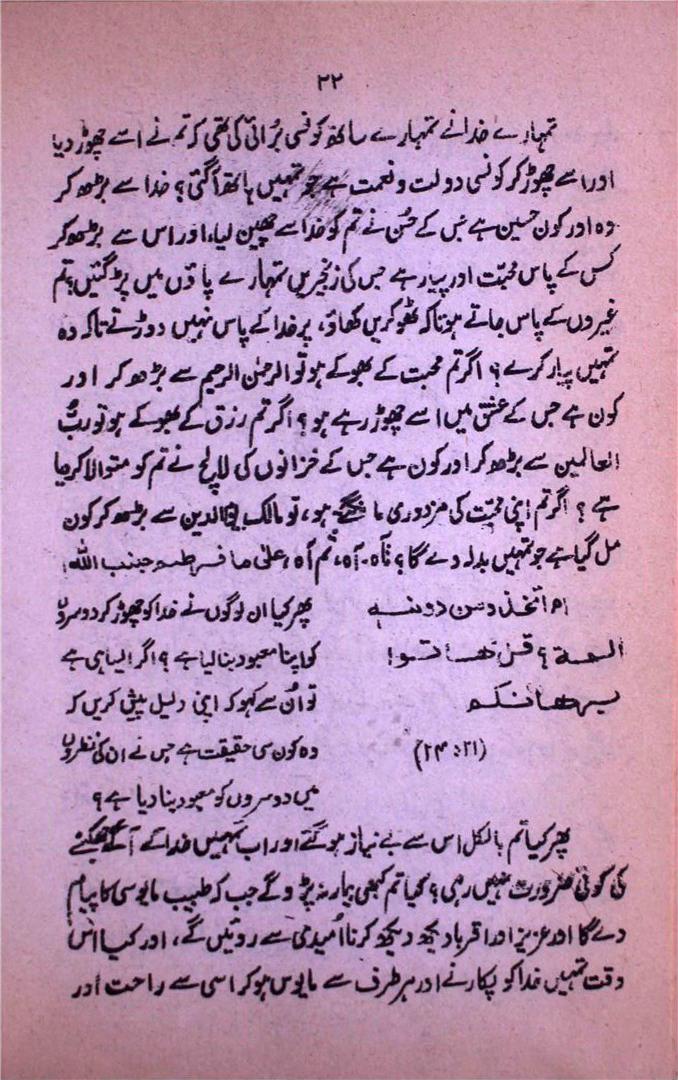 ۲۲
تمہارے خدانے تمہارے ساتھ کونسی بُرائی کی تھی کہ تم نے اسے چھوڑ دیا
اور اسے چھوڑ کر کونسی دولت و نعمت ہے جو تمہیں ہاتھ آگئی؟ خدا سے بڑھ کر
وہ اور کون حسین ہے جس کے حُسن نے تم کو خدا سے چھین لیا، اور اس سے بڑھ کر
کس کے پاس محبت اور پیار ہے جس کی زنجیریں تمہارے پاؤں میں پڑگئیں؟ تم
غیروں کے پاس جاتے ہو تاکہ ٹھوکریں کھاؤ، پر خدا کے پاس نہیں دوڑتے تاکہ وہ
تمہیں پیار کرے؟ اگر تم محبت کے بھوکے ہو تو الرحمٰن الرحیم سے بڑھ کر اور
کون ہے جس کے عشق میں اسے چھوڑ رہے ہو؟ اگر تم رزق کے بھوکے ہو تو ربُّ
العالمین سے بڑھ کر اور کون ہے جس کے خزانوں کی لالچ نے تم کو متوالا کر دیا
ہے؟ اگر تم اپنی محنت کی مزدوری مانگتے ہو، تو مالک یوم الدین سے بڑھ کر کون
مل گیا ہے جو تمہیں بدلہ دے گا؟ فآہ۔ آہ، ثم آہ، علیٰ ما فرطتم جنب اللہ!
ام اتخذو من دونہ
الھة؟ قل ھاتوا
برھانکم
(۲۴:۲۱)
پھر کیا ان لوگوں نے خدا کو چھوڑ کر دوسروں
کو اپنا معبود بنا لیا ہے؟ اگر ایسا ہی ہے
تو اُن سے کہو کہ اپنی دلیل پیش کریں کہ
وہ کون سی حقیقت ہے جس نے ان کی نظروں
میں دوسروں کو معبود بنا دیا ہے؟
پھر کیا تم بالکل اس سے بے نیاز ہوگئے اور اب تمہیں خدا کے آگے جھکنے
کی کوئی ضرورت نہیں رہی؟ کیا تم کبھی بیمار نہ پڑو گے جب کہ طبیب مایوسی کا پیام
دے گا اور عزیز اور اقربا دیکھ دیکھ کر نا اُمیدی سے روئیں گے، اور کیا اُس
وقت تمہیں خدا کو پکارنے اور ہر طرف سے مایوس ہوکر اسی سے راحت اور